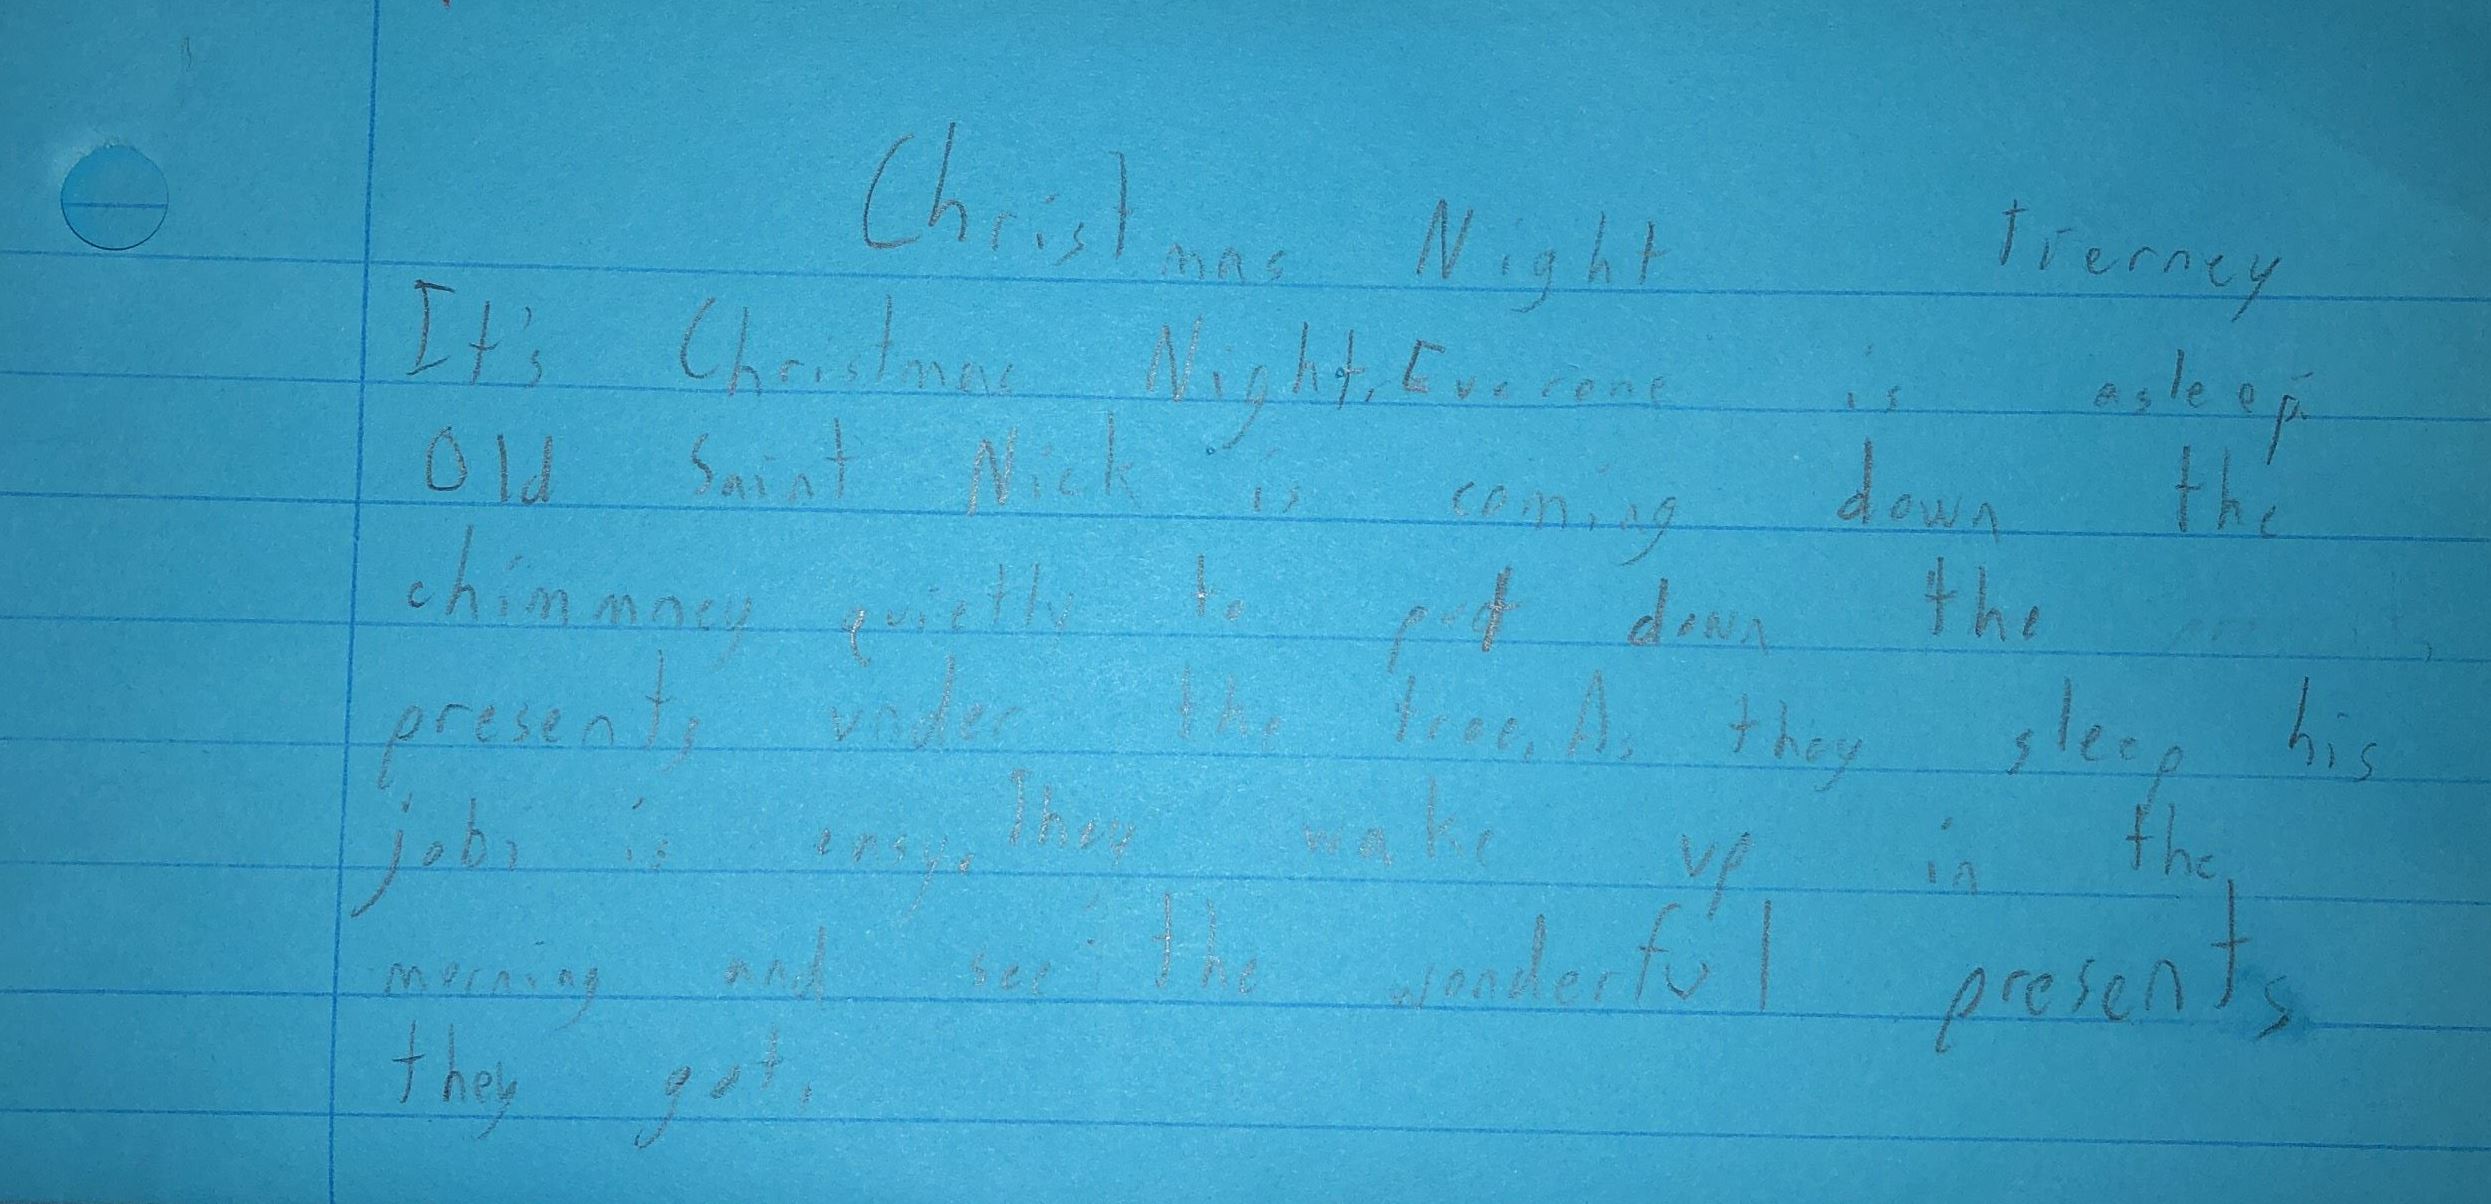 Christmas Night Tierney
It's Christmas Night, Everone is asleep.
Old Saint Nick is coming down the
chimmney quietly to put down the
presents under the tree. As they sleep his
jobs is easy. They wake up in the
morning and see the wonderful presents
they got.